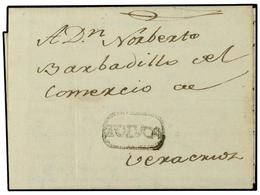 A Dn Norberto
Barbadillo del
Comercio de
TOLUCA
Veracruz